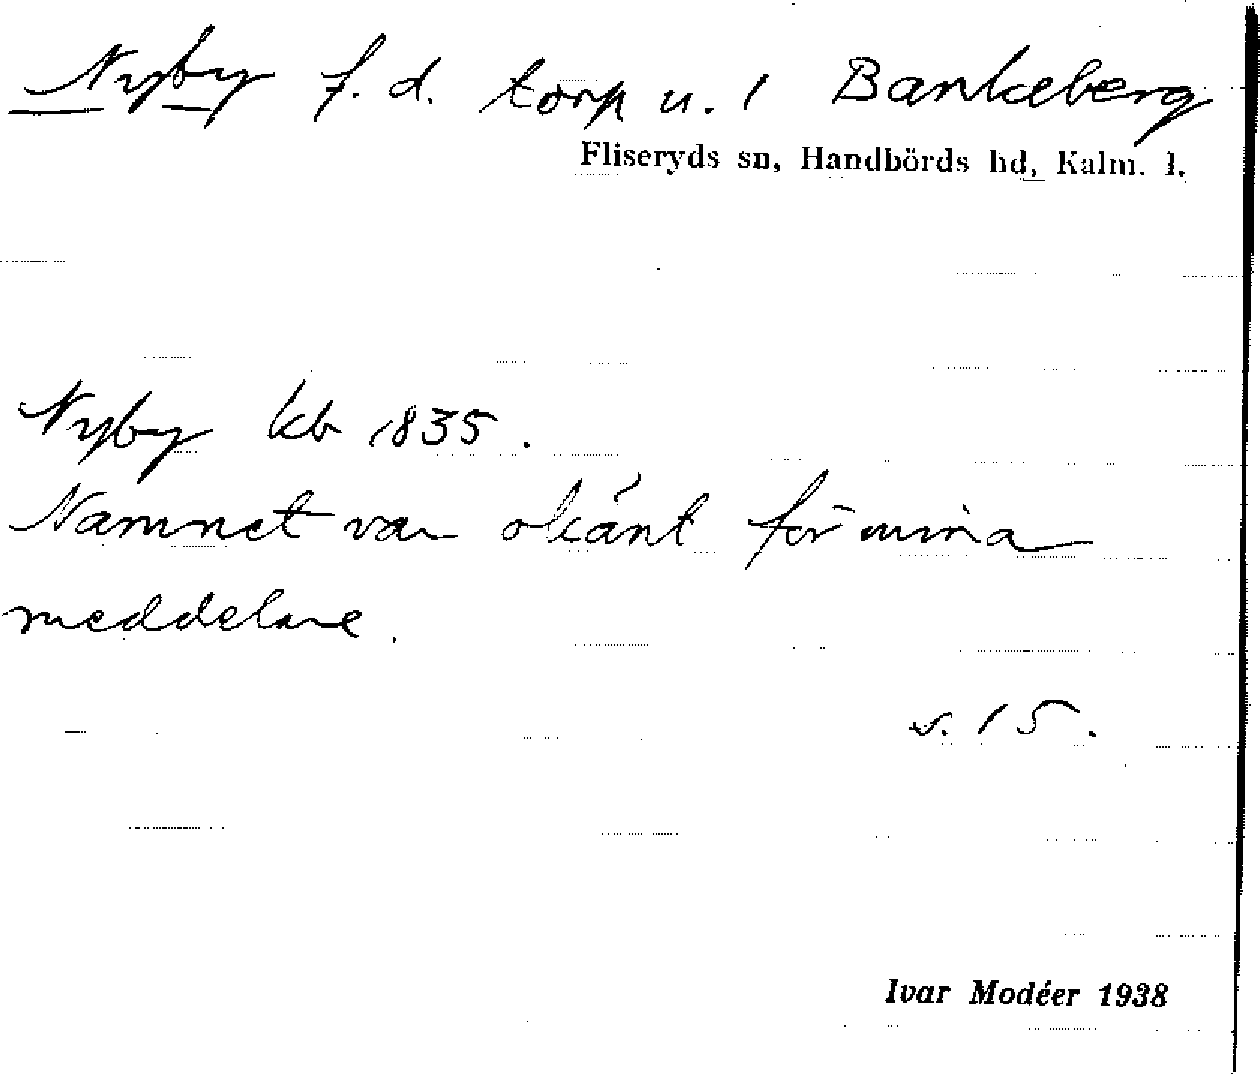 Nyby f. d. torp u. 1 Bankeberg
Fliseryds sn, Handbörds hd, Kalm. l.
Nyby kb 1835.
Namnet var okänt för mina
meddelare.
s. 15.
Ivar Modéer 1938